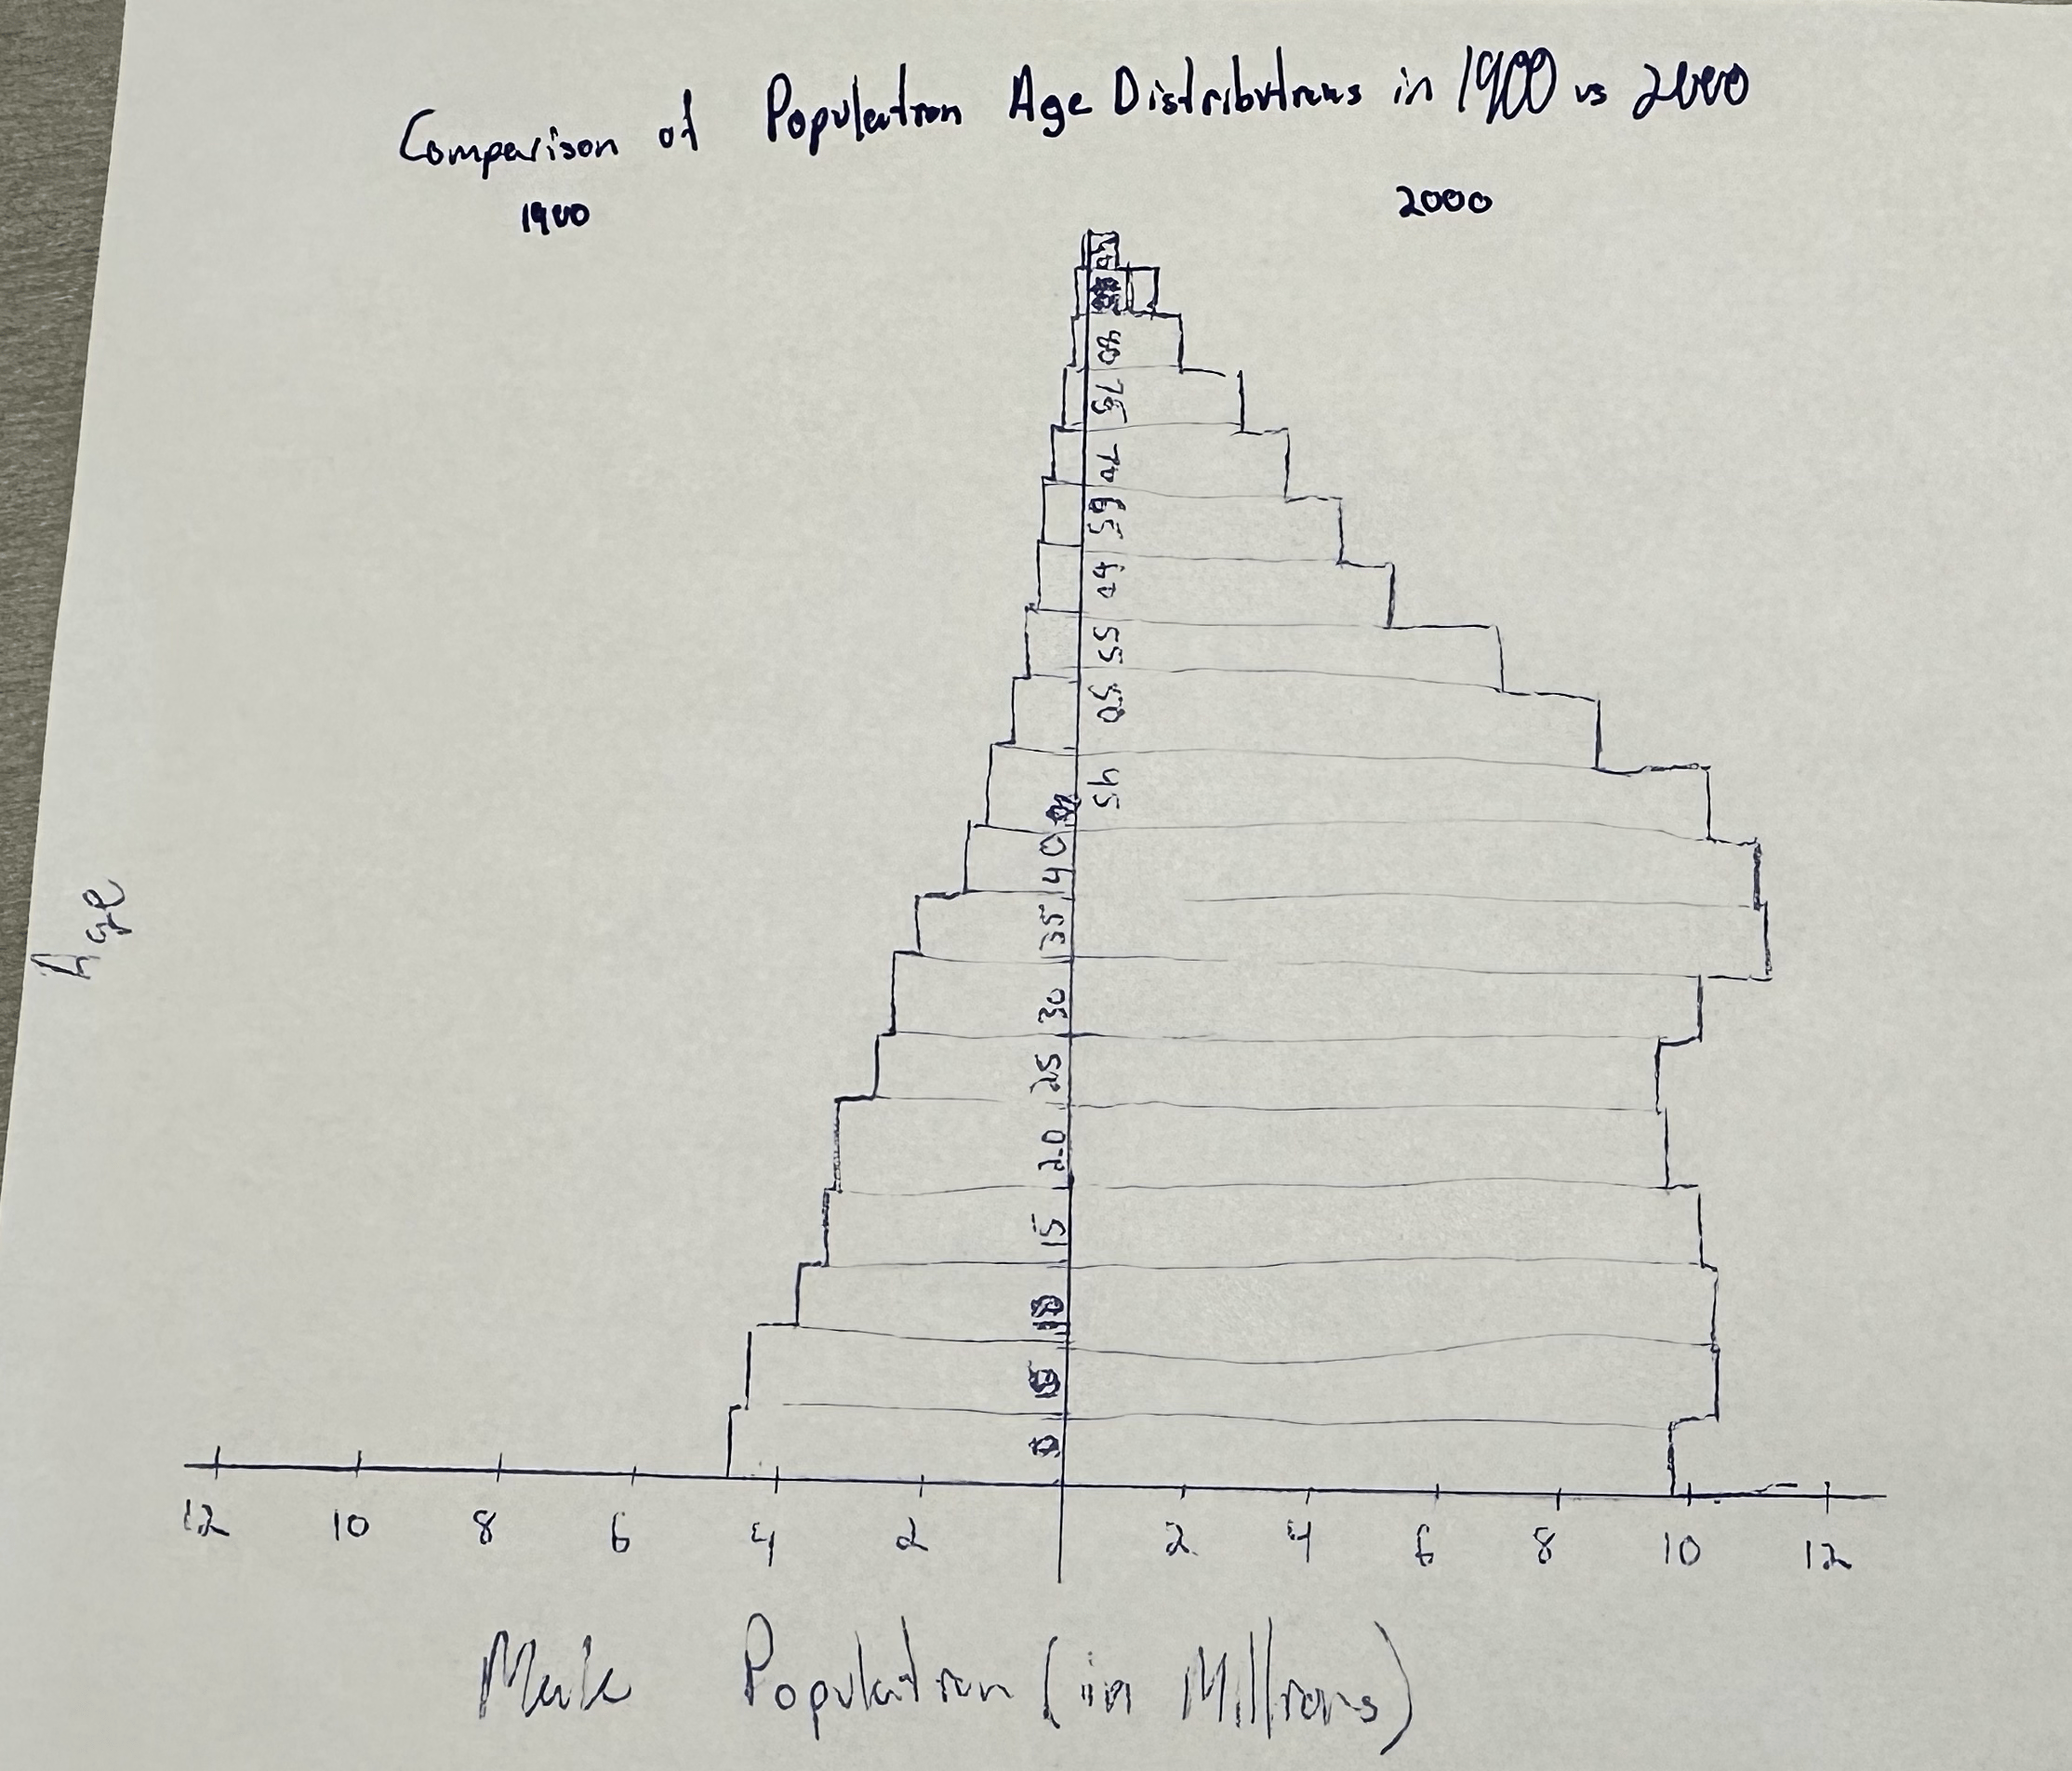 Comparison of Population Age Distributions in 1900 vs 2000
1900
2000
80
75
70
65
60
55
50
45
40
35
30
25
20
15
10
5
0
Age
12 10 8 6 4 2 2 4 6 8 10 12
Male Population (in Millions)